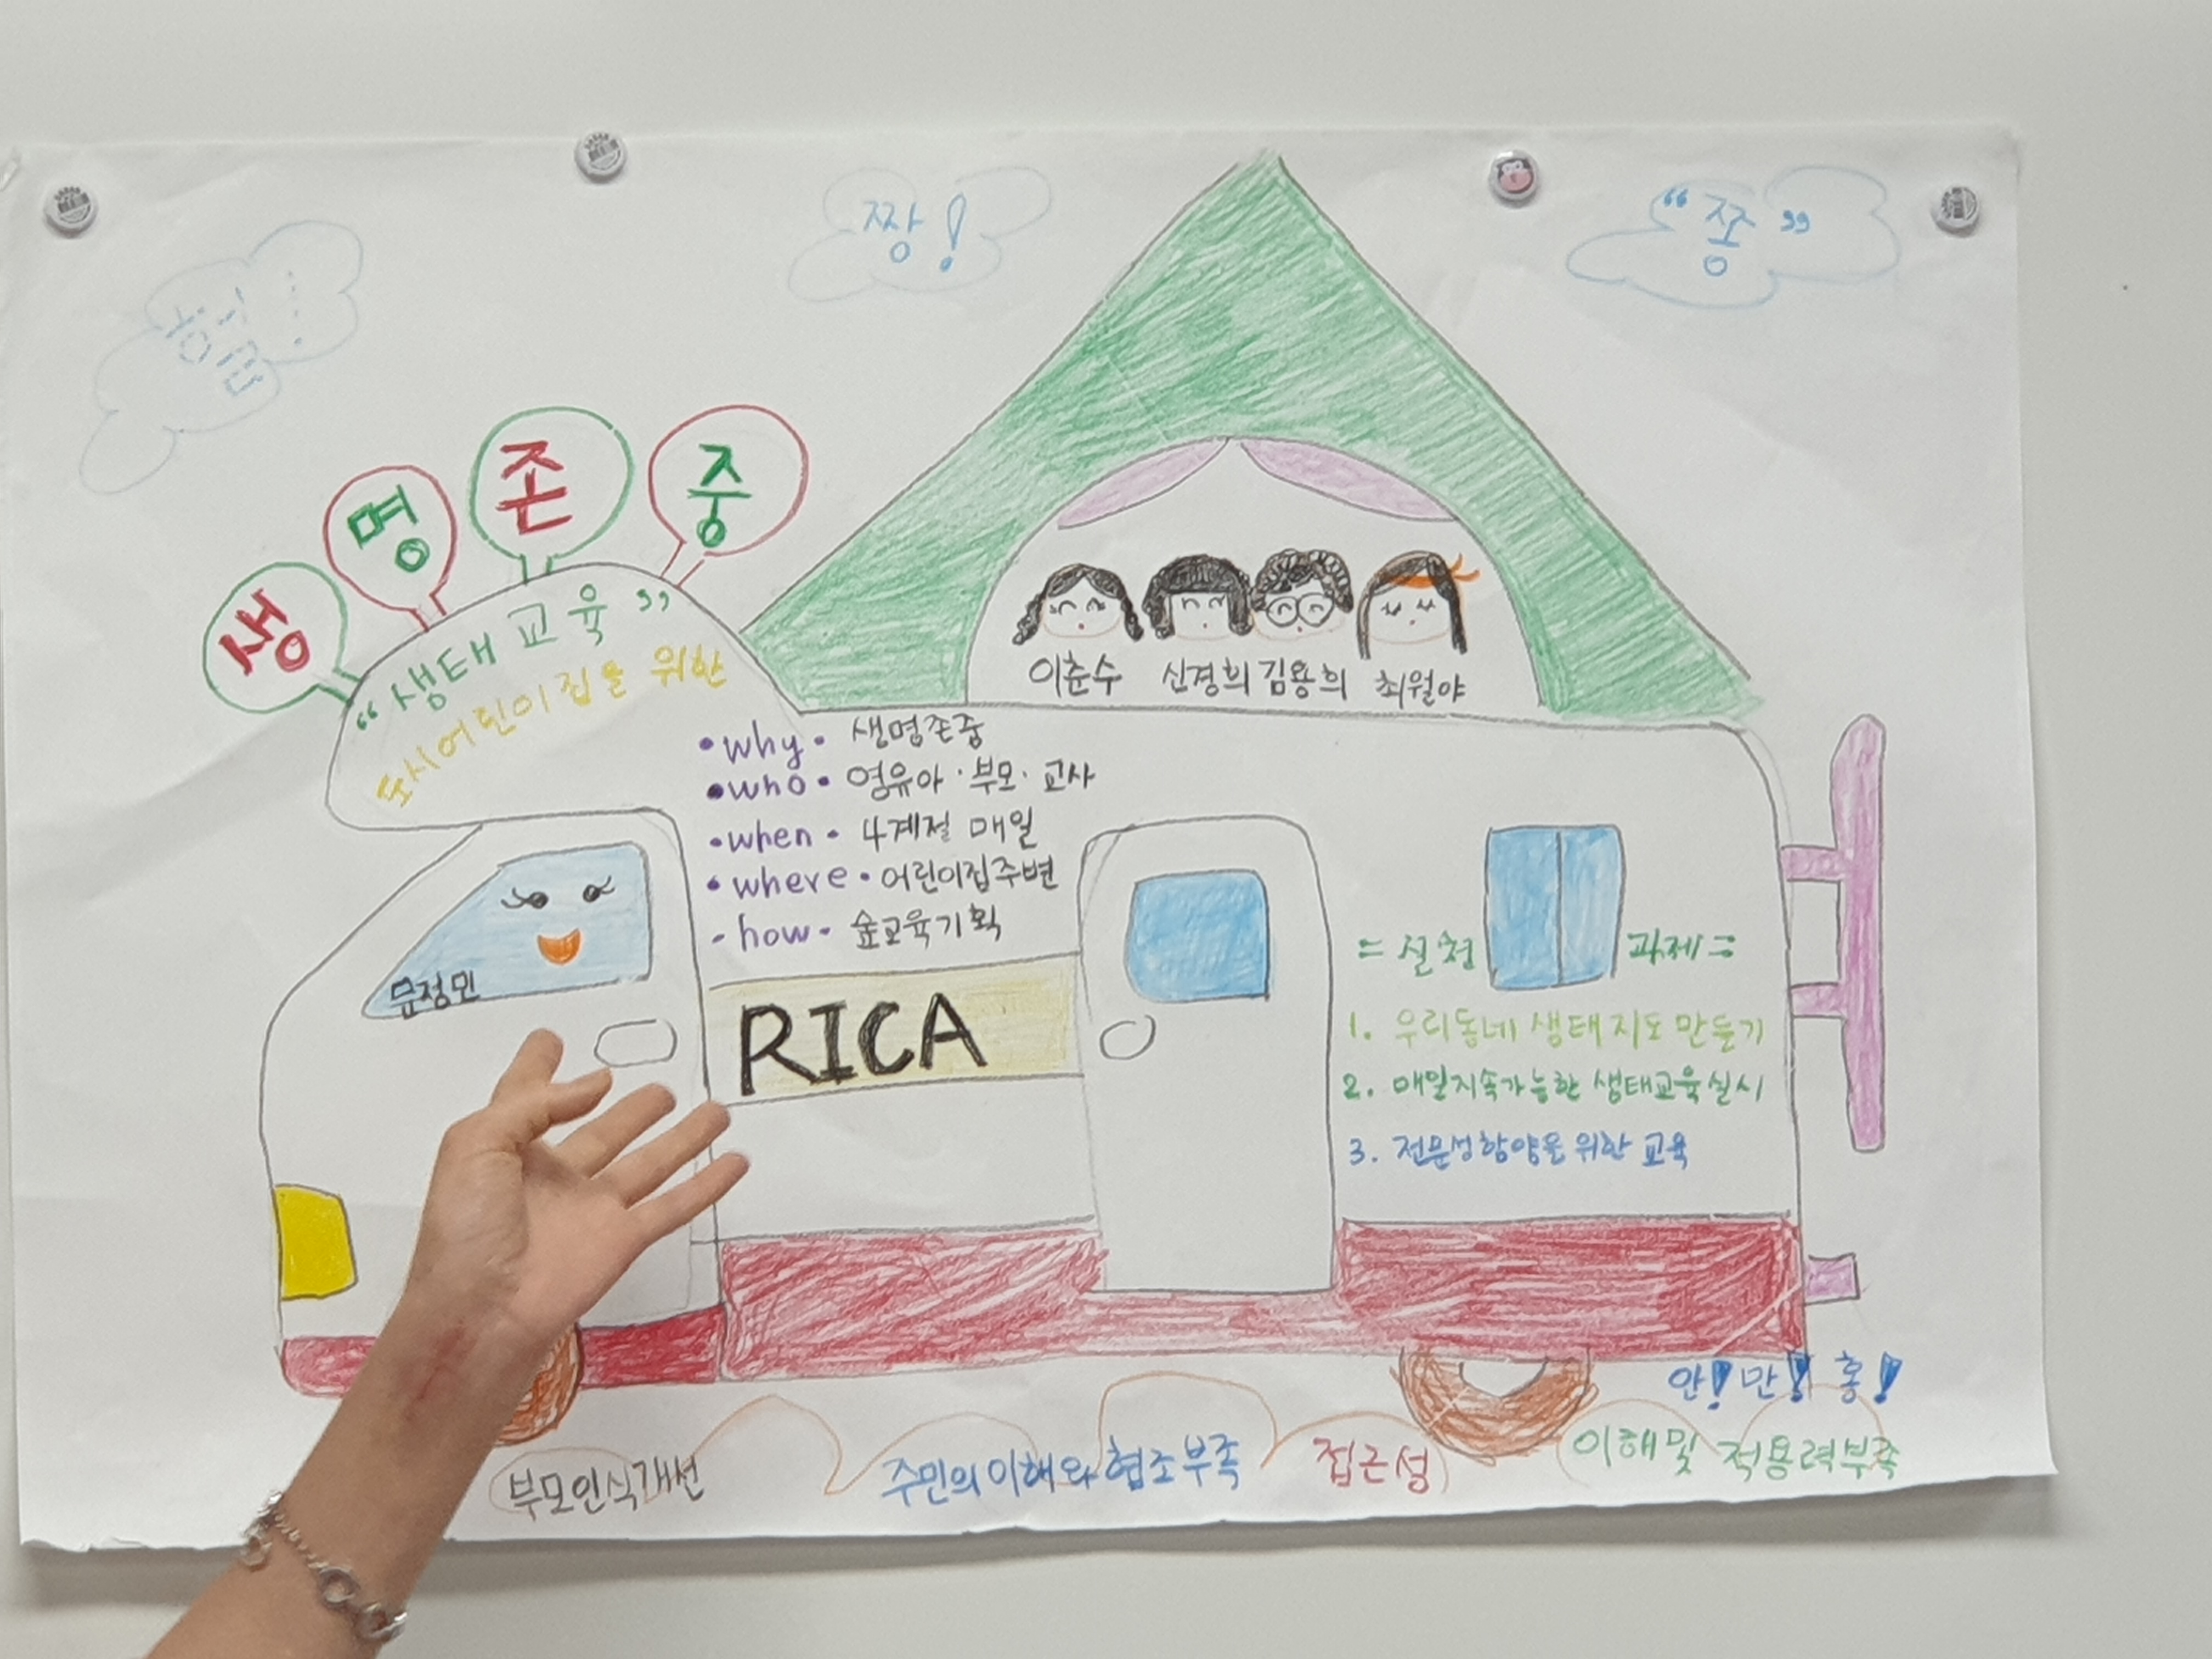 힐...
짱!
"쫑"
생명존중
"생태교육"
도시어린이집을 위한
이춘수 신경희 김용희 최월야
•why• 생명존중
•who• 영유아·부모·교사
•when• 4계절 매일
•where• 어린이집주변
-how- 숲교육기획
문정민
RICA
=실천 과제=
1. 우리동네 생태지도 만들기
2. 매일지속가능한 생태교육실시
3. 전문성함양을 위한 교육
안! 만! 홍!
부모인식개선
주민의 이해와 협조부족
접근성
이해및 적용력부족